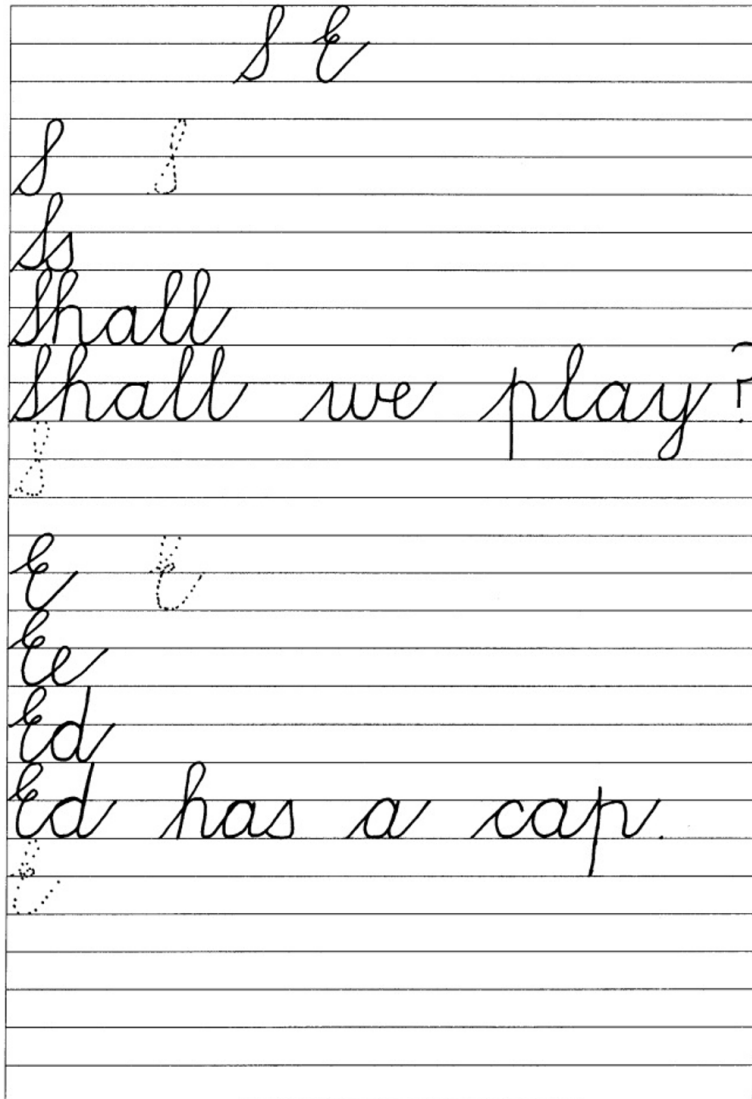 S E
S S
Ss
Shall
Shall we play?
S
E E
Ee
Ed
Ed has a cap.
E